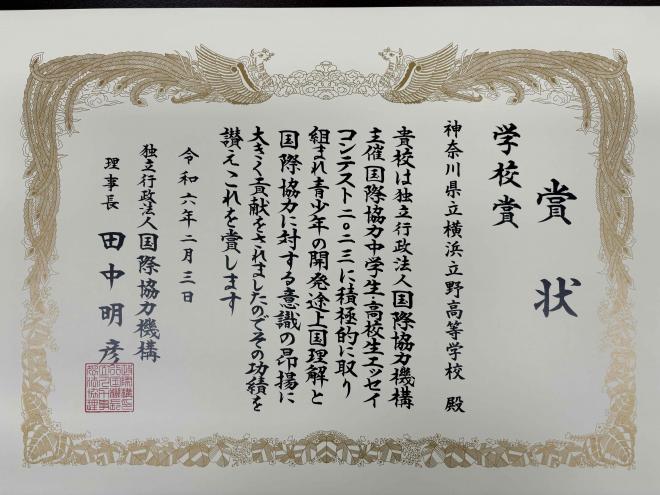 賞状
学校賞
神奈川県立横浜立野高等学校 殿
貴校は独立行政法人国際協力機構
主催国際協力中学生・高校生エッセイ
コンテスト二〇二三に積極的に取り
組まれ青少年の開発途上国理解と
国際協力に対する意識の昂揚に
大きく貢献をされましたのでその功績を
讃えこれを賞します
令和六年二月三日
独立行政法人国際協力機構
理事長 田中明彦